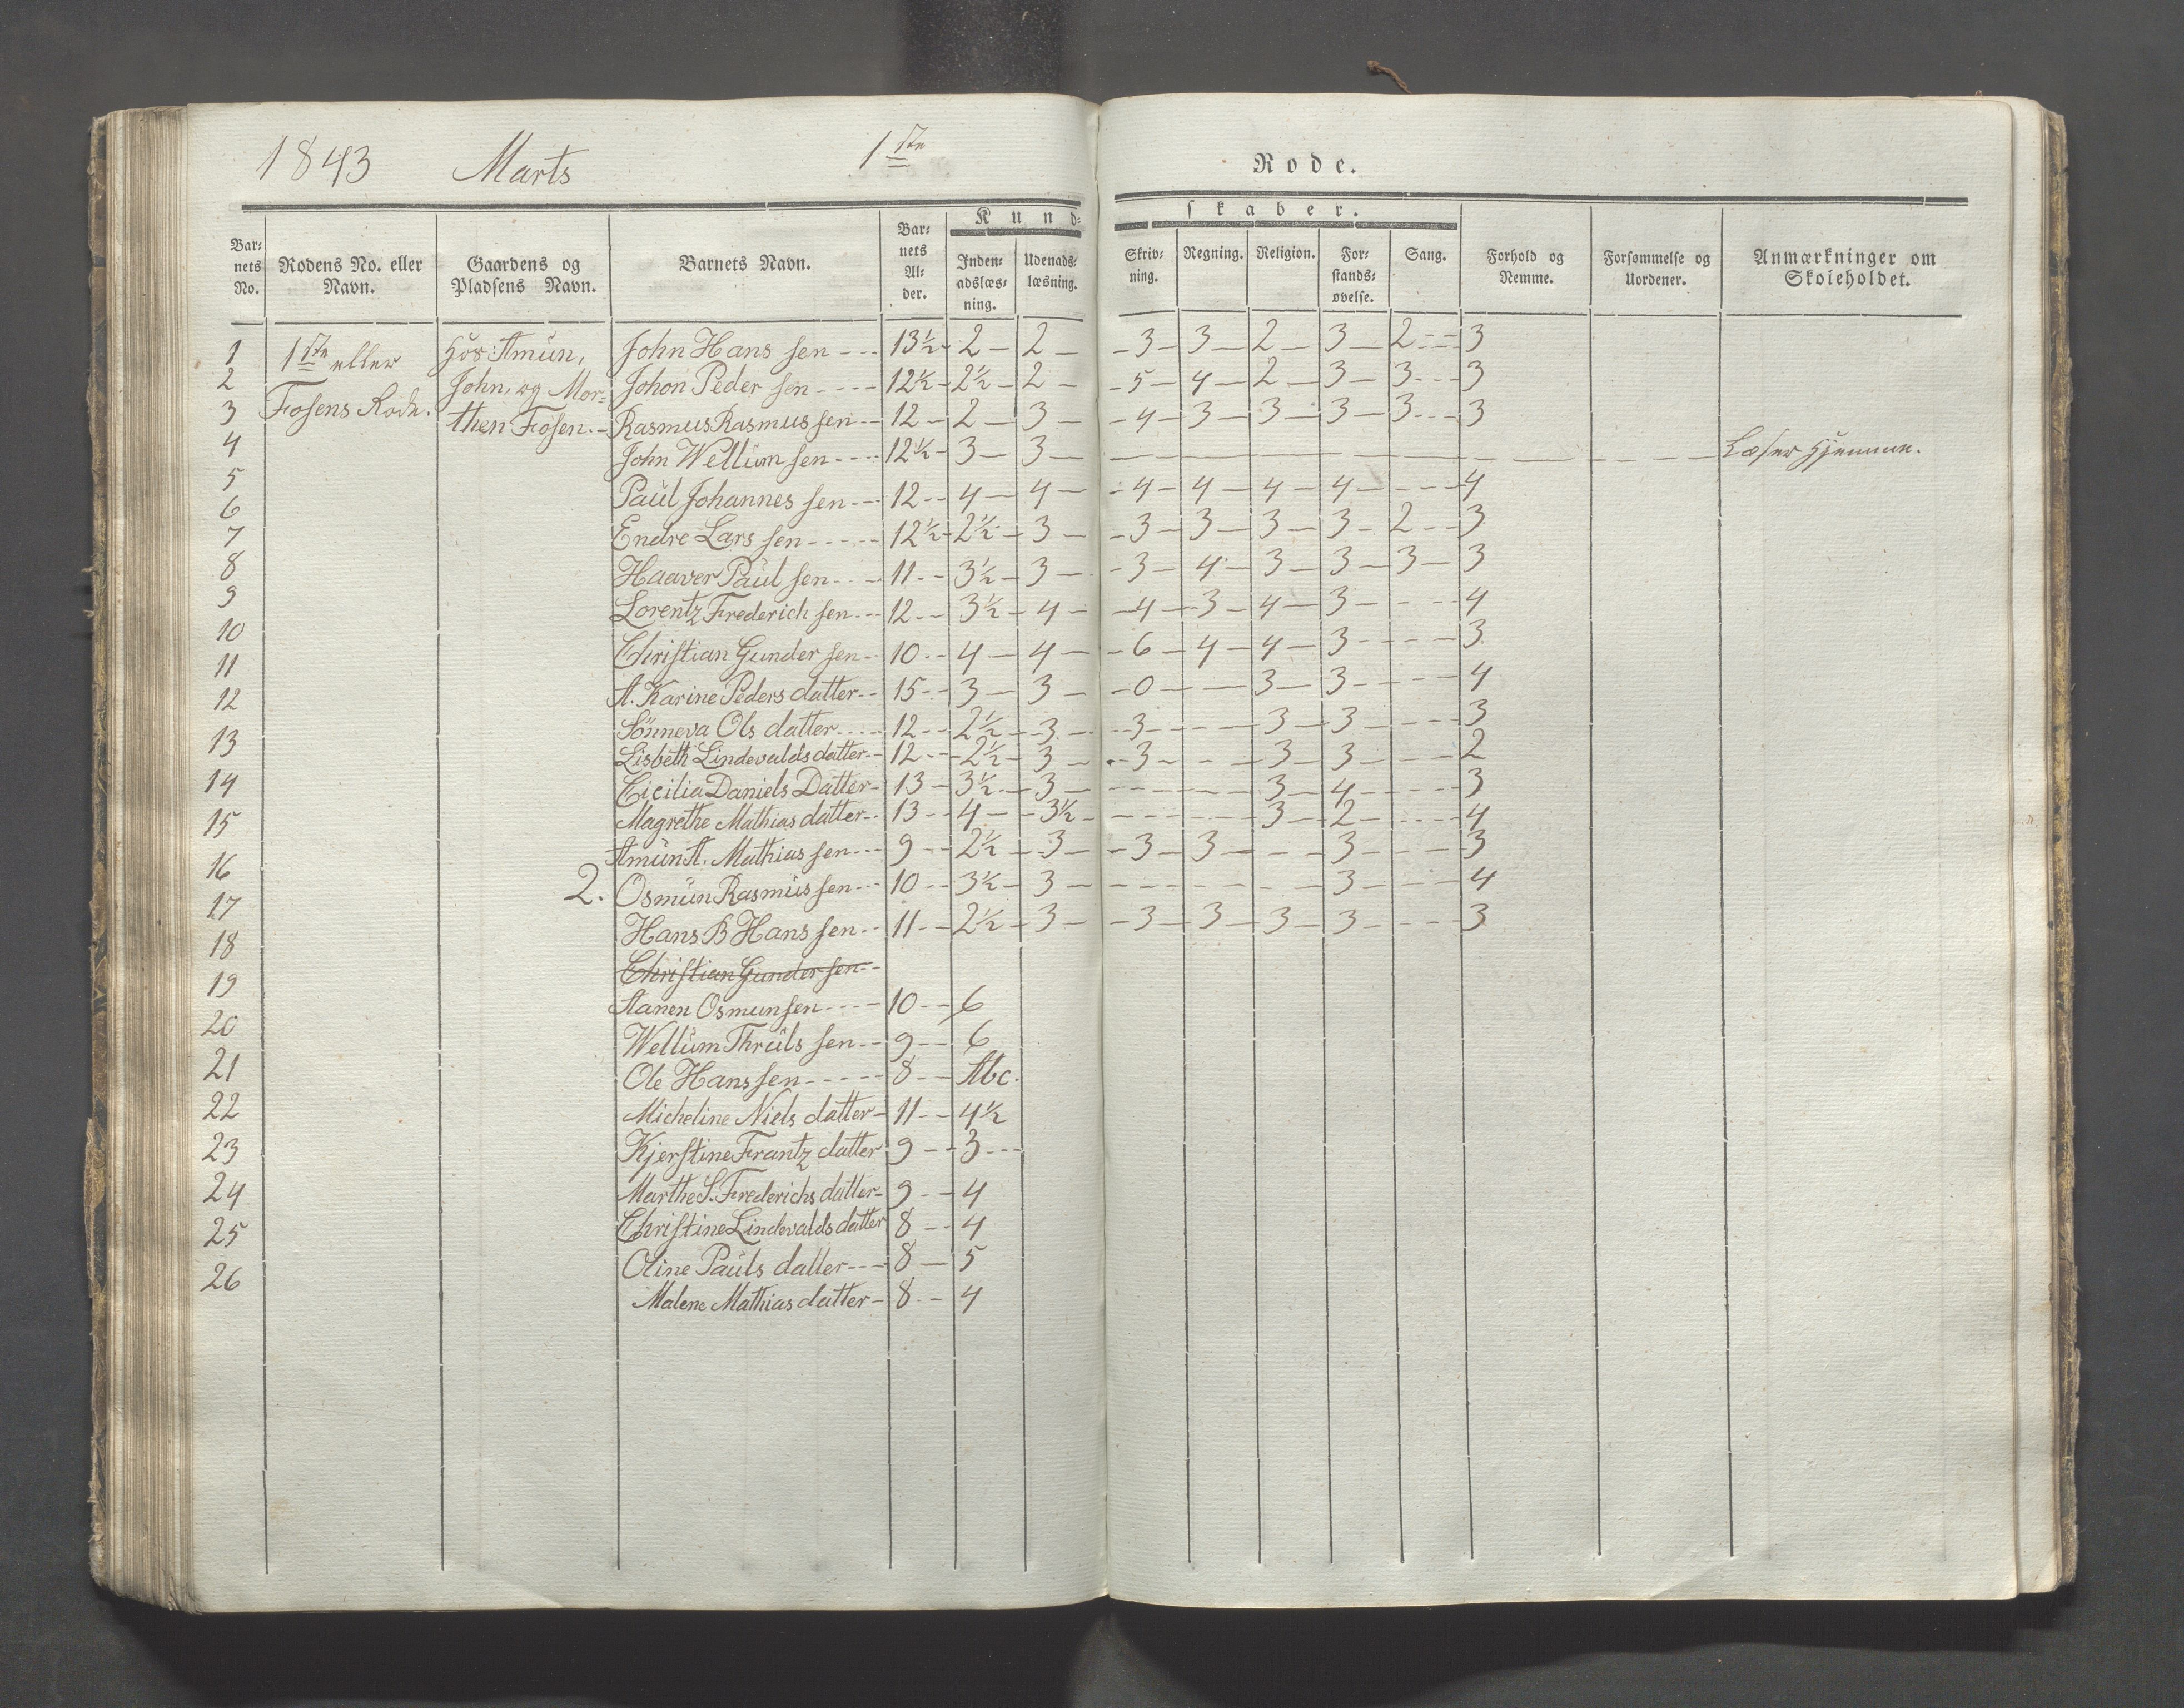 1843 Marts 1ste Rode.
Barnets No. Rodens No. eller Navn. Gaardens og Pladsens Navn. Barnets Navn. Barnets Alder. Kundskaber. Indenadslæsning. Udenadslæsning. Skrivning. Regning. Religion. Forstandsøvelse. Sang. Forhold og Nemme. Forsømmelse og Uordener. Anmærkninger om Skoleholdet.
1 1ste eller hos Amün, John Hans sen 13½ 2 2 3 3 2 3 2 3
2 Fosens Rode. John, og Mor= Johon Peder sen 12½ 2½ 2 5 4 2 3 3 3
3 then Fosen. Rasmus Rasmus sen 12 2 3 4 3 3 3 3 3
4 John Wellüm sen 12½ 3 3 Læser hjemme.
5 Paül Johannes sen 12 4 4 4 4 4 4 4
6 Endre Lars sen 12½ 2½ 3 3 3 3 3 2 3
7 Haaver Paül sen 11 3½ 3 3 4 3 3 3 3
8 Lorentz Frederich sen 12 3½ 4 4 3 4 3 4
9 Christian Gunder sen 10 4 4 6 4 4 3 3
10 A. Karine Peders datter 15 3 3 0 3 3 4
11 Sönneva Ols datter 12 2½ 3 3 3 3 3
12 Lisbeth Lindevalds datter 12 2½ 3 3 3 3 2
13 Cicilia Daniels Datter 13 3½ 3 3 4 3
14 Magrethe Mathias datter 13 4 3½ 3 2 4
15 Amün A. Mathias sen 9 2½ 3 3 3 3 3
16 2. Osmün Rasmüs sen 10 3½ 3 3 4
17 Hans B Hans sen 11 2½ 3 3 3 3 3 3
Christian Gunder sen
18 Aanen Osmun sen 10 6
19 Wellüm Thrüls sen 9 6
20 Ole Hans sen 8 Abc.
21 Micheline Niels datter 11 4½
22 Kjerstine Frantz datter 9 3
23 Marthe S. Frederichs datter 9 4
24 Christine Lindevalds datter 8 4
25 Oline Paüls datter 8 5
26 Malene Mathias datter 8 4